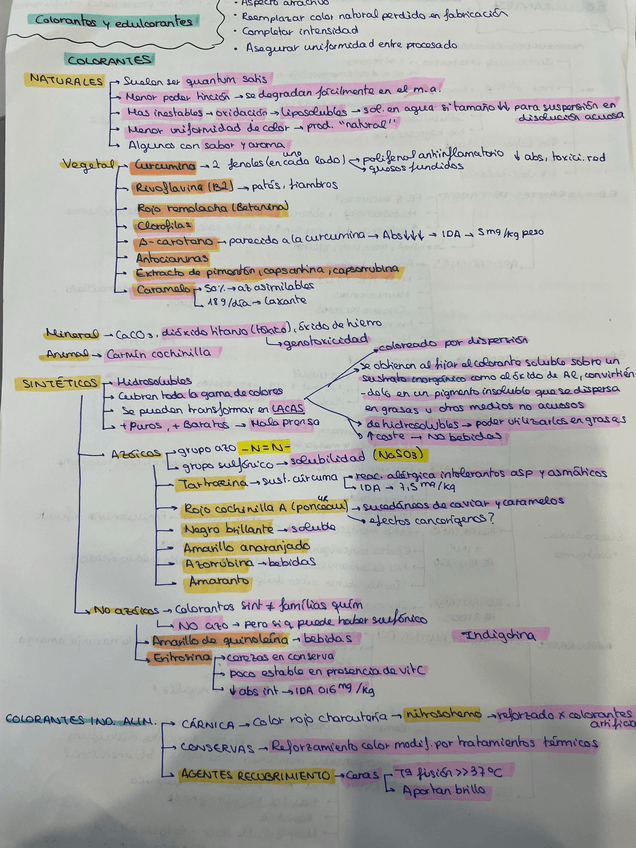 • Aspecto atractivo
Colorantes y edulcorantes
• Reemplazar color natural perdido en fabricación
• Completar intensidad
• Asegurar uniformidad entre procesado
COLORANTES
NATURALES → Suelen ser quantum satis
→ Menor poder tinción → se degradan fácilmente en el m.a.
→ Mas inestables → oxidación → liposolubles → sol. en agua si tamaño ↓↓ para suspensión en disolución acuosa
→ Menor uniformidad de color → prod. "natural"
→ Algunos con sabor y aroma
Vegetal → Curcumina → 2 fenoles (uno en cada lado) → polifenol antiinflamatorio ↓ abs, toxici. red
→ quesos fundidos
→ Rivoflavina (B2) → patés, fiambres
→ Rojo remolacha (Betanina)
→ Clorofilas
→ β-caroteno → parecido a la curcumina → Abs↓↓↓ → IDA → 5mg/kg peso
→ Antocianinas
→ Extracto de pimentón, capsantina, capsorrubina
→ Caramelo → 50% → az asimilables
→ 18g/día → laxante
Mineral → CaCO3, dióxido titanio (tóxico), óxido de hierro
→ genotoxicidad
Animal → Carmín cochinilla
→ coloreado por dispersión
SINTÉTICOS → Hidrosolubles
→ Cubren toda la gama de colores
→ Se pueden transformar en LACAS
→ + Puros, + Baratos → Mala prensa
→ se obtienen al fijar el colorante soluble sobre un
sustrato inorgánico como el óxido de Al, convirtién
-dola en un pigmento insoluble que se dispersa
en grasas u otros medios no acuosos
→ de hidrosolubles → poder utilizarlos en grasas
→ ↑ coste → NO bebidas
→ Azóicos → grupo azo -N=N-
→ grupo sulfónico → solubilidad (NaSO3)
→ Tartracina → sust. cúrcuma → reac. alérgica intolerantes asp y asmáticos
→ IDA → 7,5 mg/kg
→ Rojo cochinilla A (ponceau 4R) → sucedáneos de caviar y caramelos
→ efectos cancerígenos?
→ Negro brillante → soluble
→ Amarillo anaranjado
→ Azorrubina → bebidas
→ Amaranto
→ No azóicos → Colorantes sint ≠ familias quím
→ NO azo → pero si q puede haber sulfónico
→ Amarillo de quinoleína → bebidas
* Indigotina
→ Eritrosina → cerezas en conserva
→ poco estable en presencia de vit C
→ ↓ abs int → IDA 0'6 mg/kg
COLORANTES IND. ALIM. → CÁRNICA → Color rojo charcutería → nitrosohemo → reforzado x colorantes artific
→ CONSERVAS → Reforzamiento color modif. por tratamientos térmicos
→ AGENTES RECUBRIMIENTO → Ceras → Tª fusión >> 37ºC
→ Aportan brillo